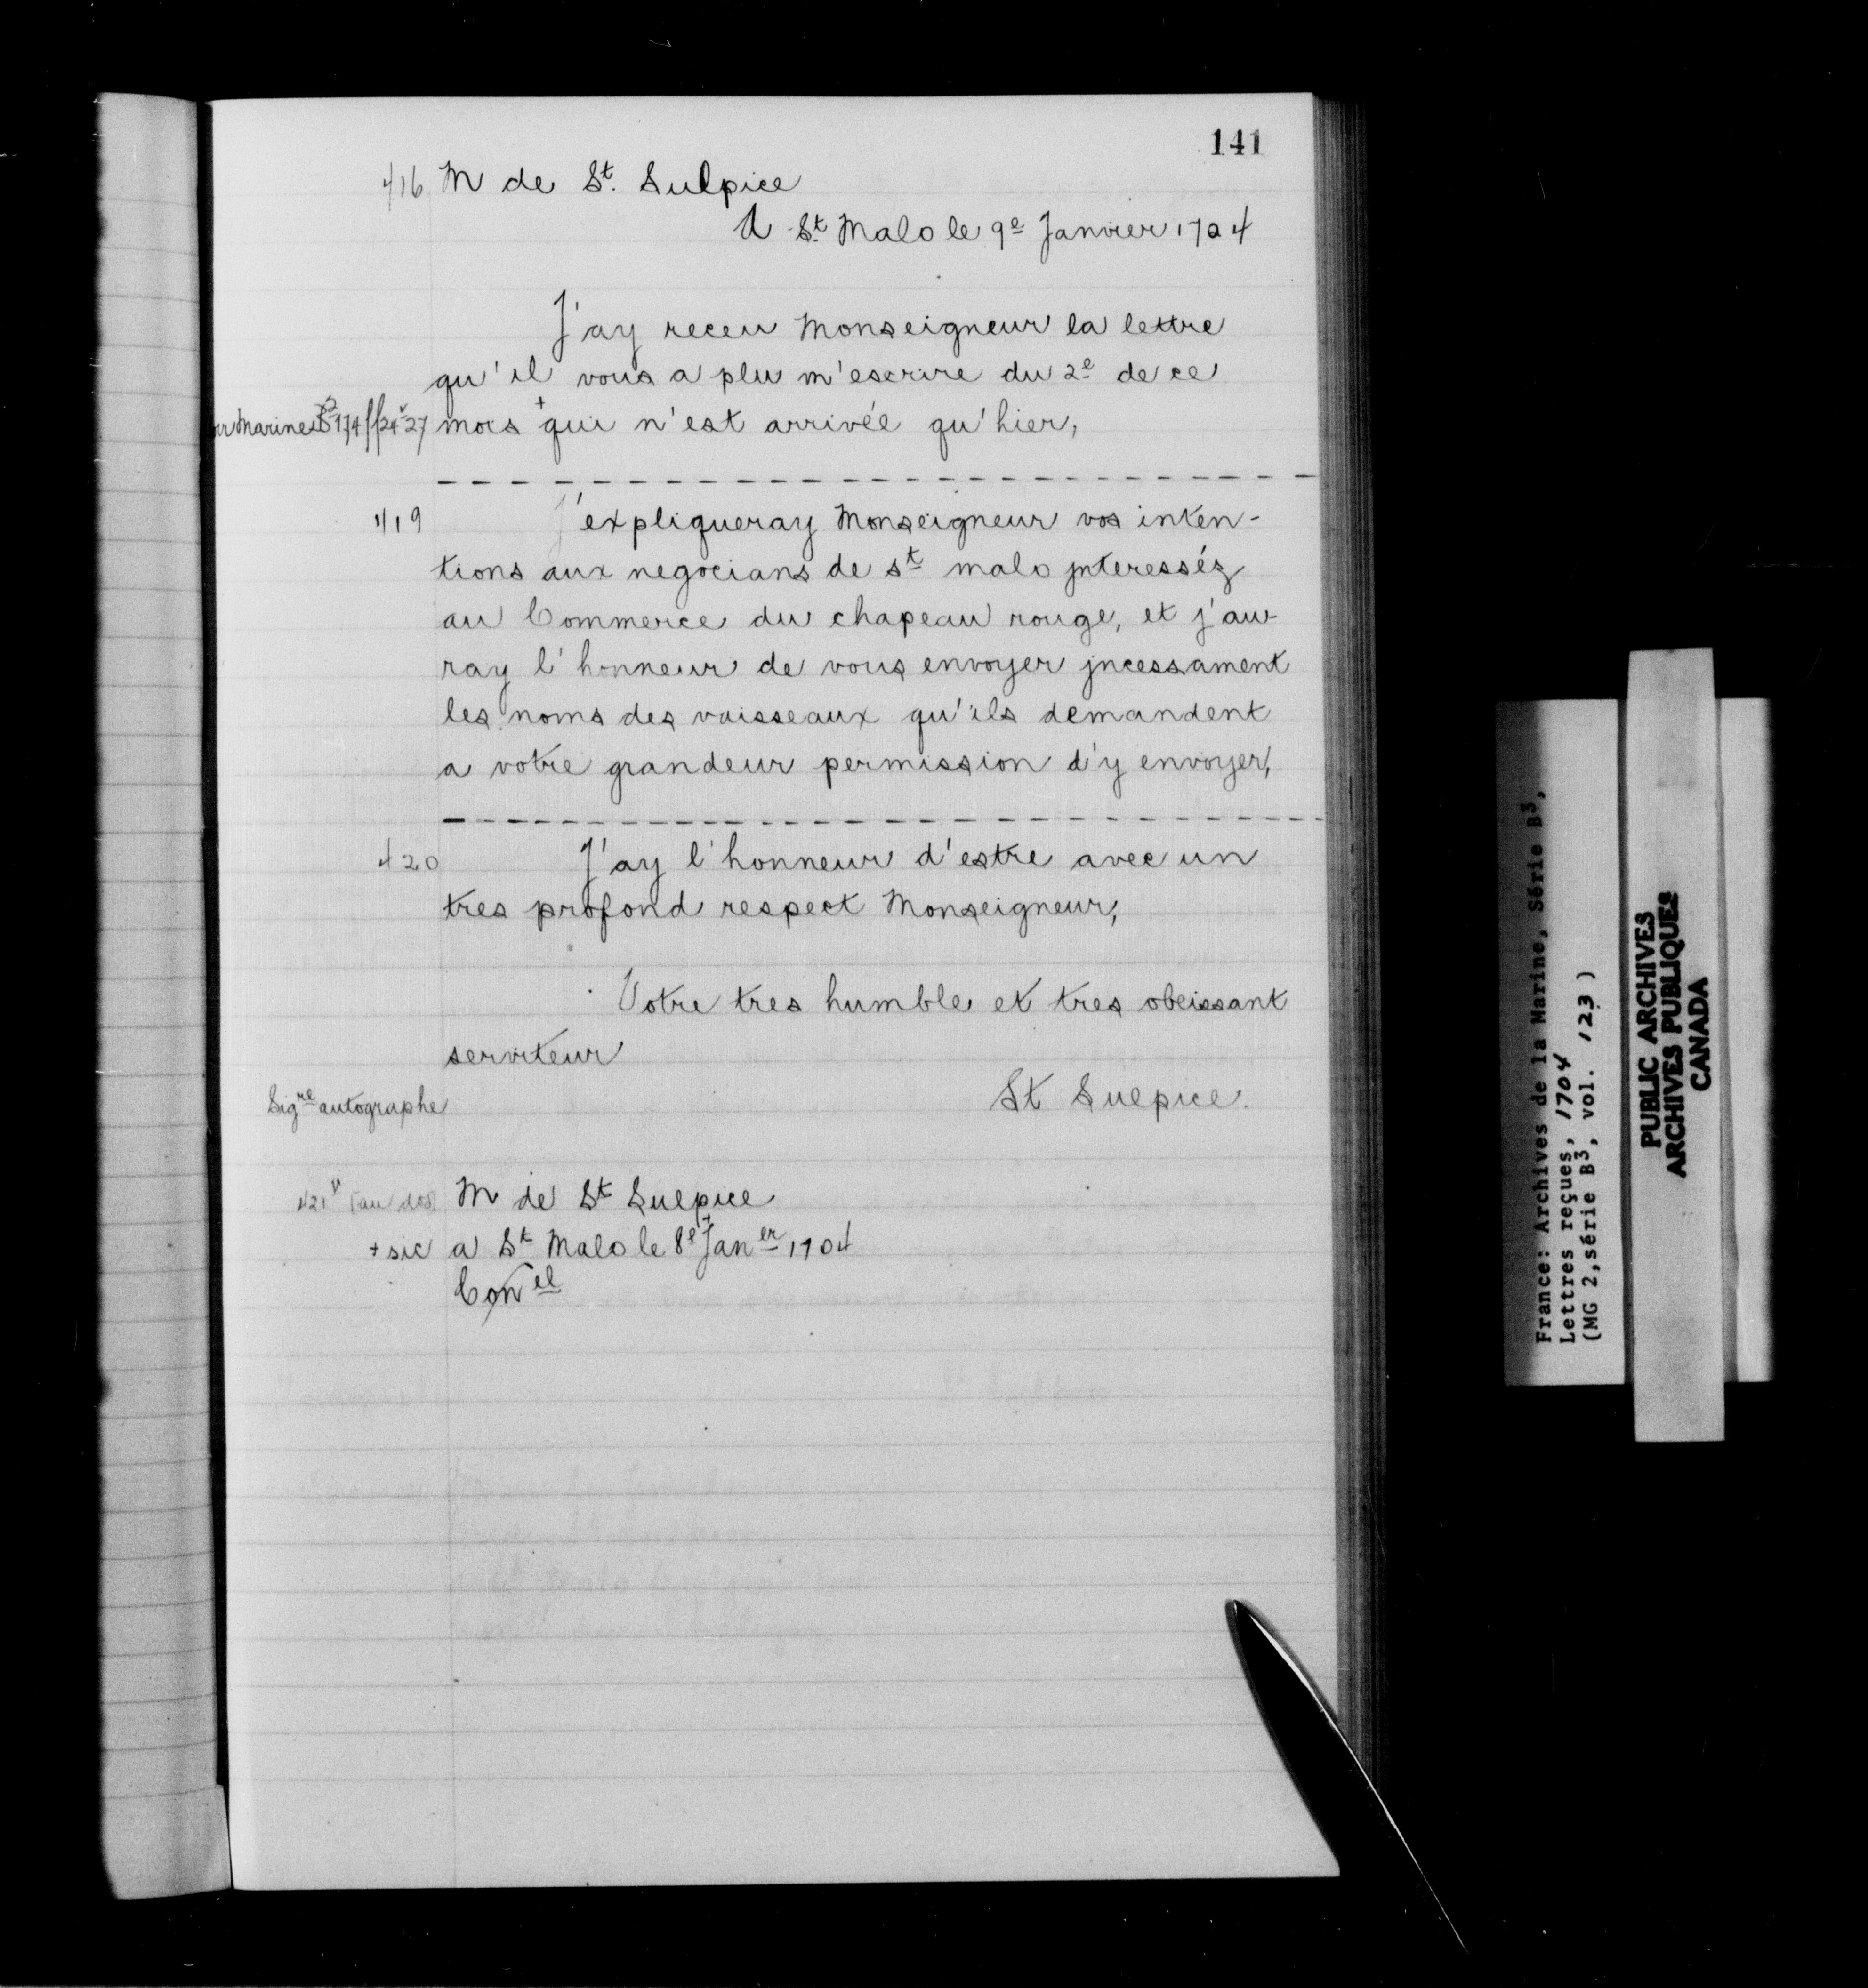 141
416 M de St. Sulpice
A St Malo le 9e Janvier 1704
J'ay receu Monseigneur la lettre
qu'il vous a plu m'escrire du 2e de ce
Marine B2 174 ff 24v 27 mois + qui n'est arrivée qu'hier,
419 J'expliqueray Monseigneur vos inten-
tions aux negocians de st malo jnteresséz
au Commerce du chapeau rouge, et j'au-
ray l'honneur de vous envoyer jncessament
les noms des vaisseaux qu'ils demandent
a votre grandeur permission d'y envoyer,
420 J'ay l'honneur d'estre avec un
tres profond respect Monseigneur,
Votre tres humble et tres obeissant
serviteur
Sigre autographe St Sulpice.
421v [au dos] M de St Sulpice
+ sic a St Malo le 8e + Janer 1704
Conel
France: Archives de la Marine, Série B3,
Lettres reçues, 1704
(MG 2, série B3, vol. 123)
PUBLIC ARCHIVES
ARCHIVES PUBLIQUES
CANADA